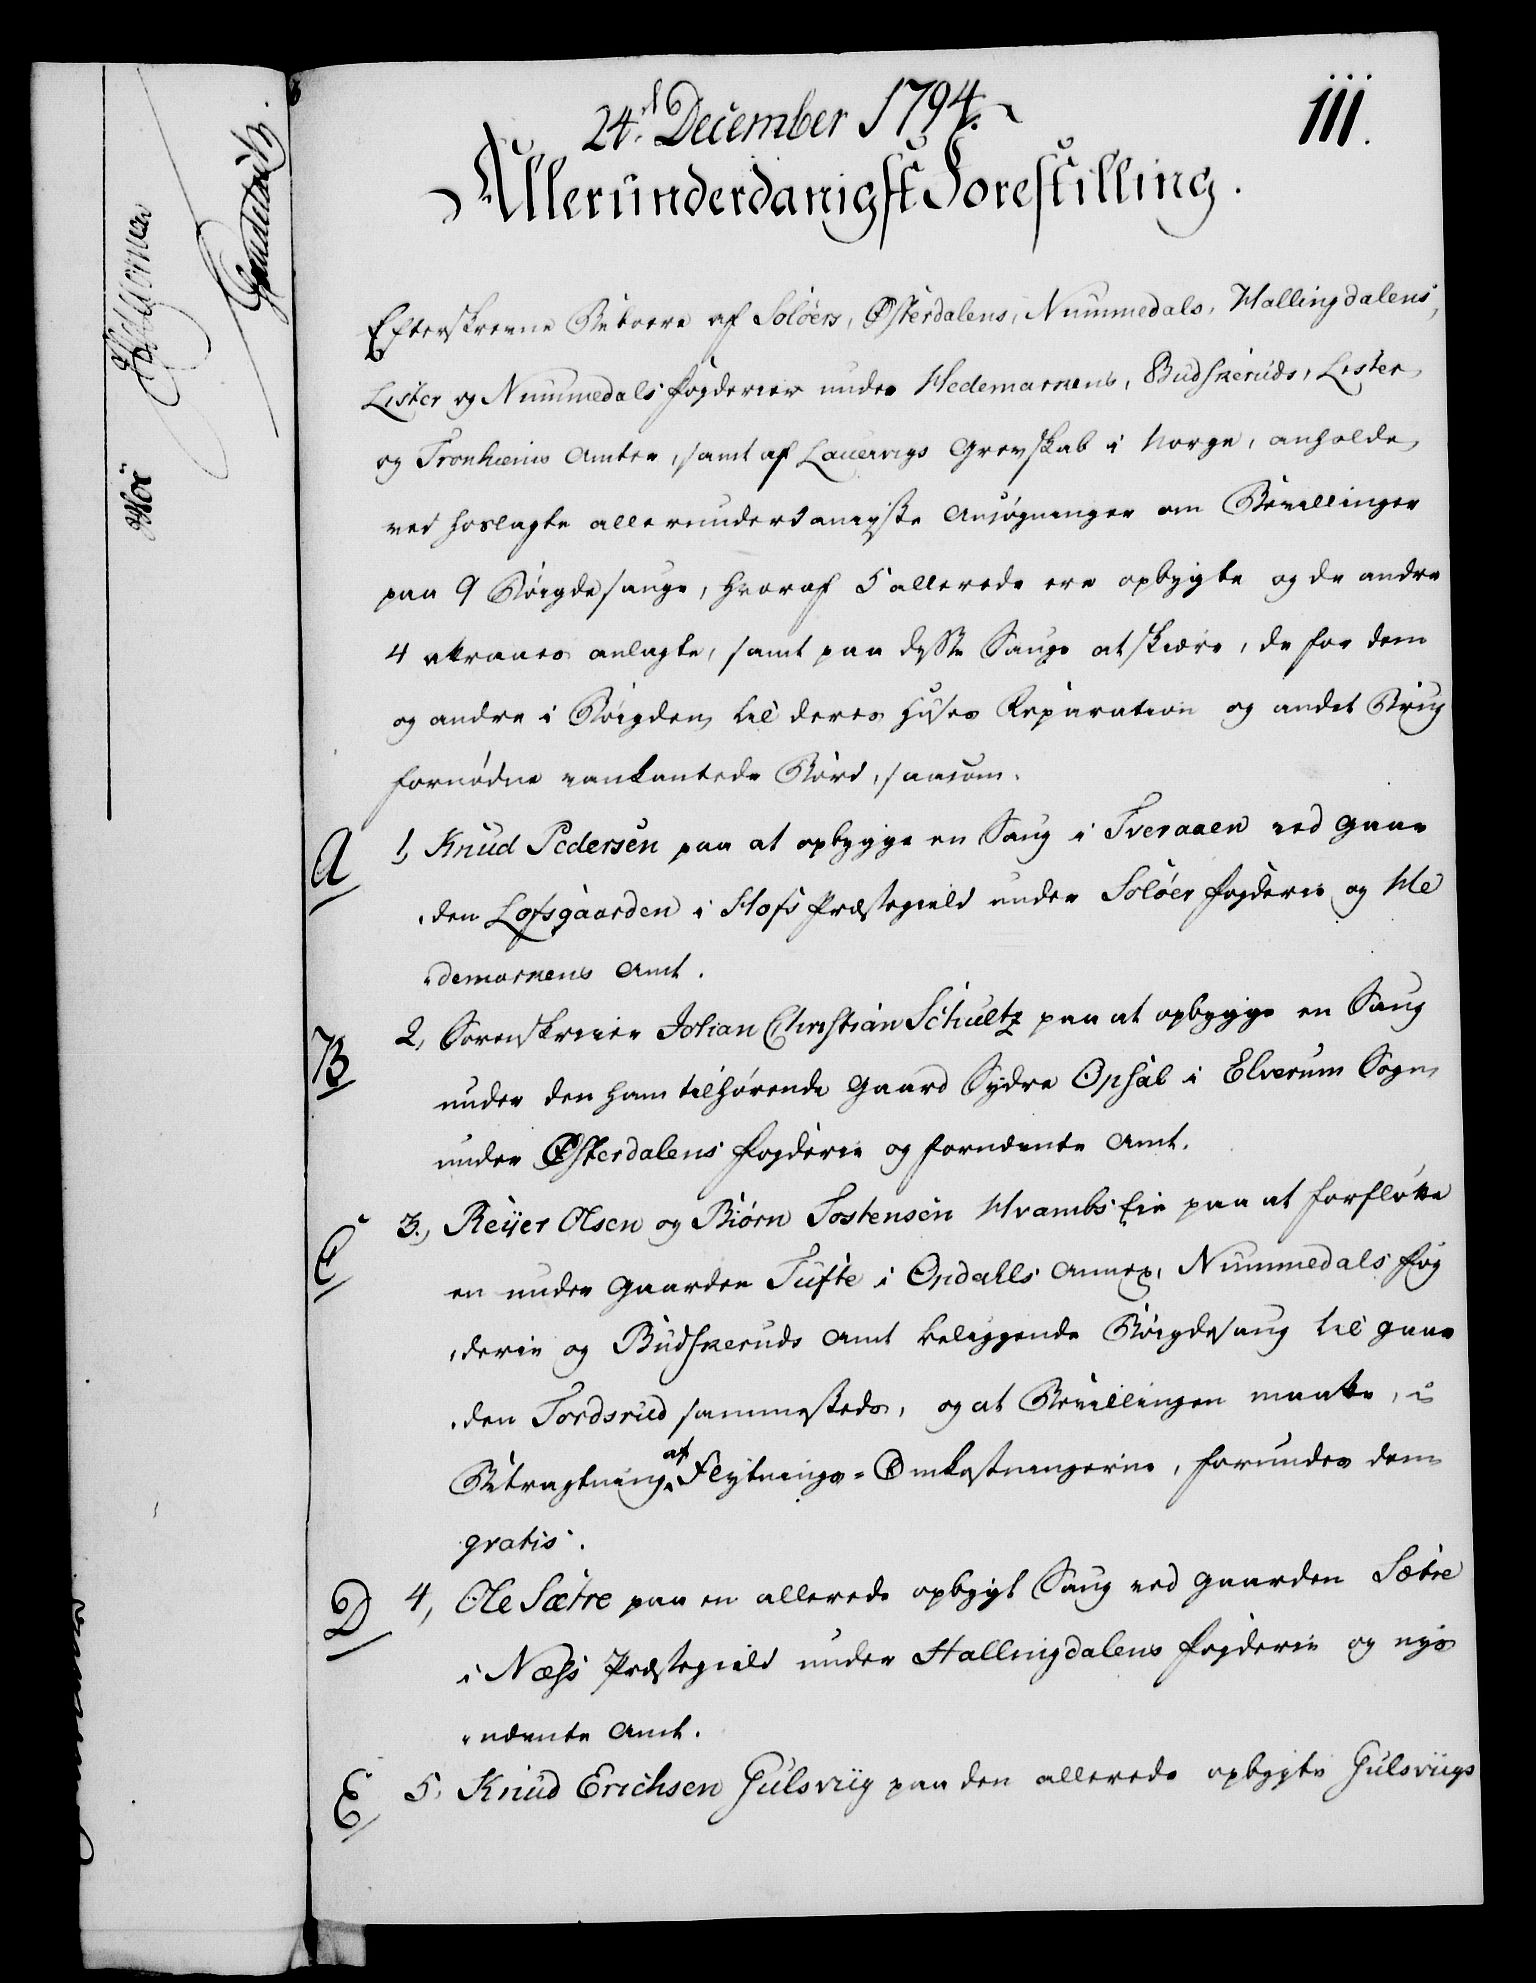 24.d December 1794.
111.
Allerunderdanigst Forestilling.
Efterskrevne Beboere af Soløers, Østerdalens, Nummedals, Hallingdalens,
Lister og Nummedals Fogderier under Hedemarkens, Budskeruds, Lister
og Tronhiems Amter, samt af Laurvigs Grevskab i Norge, anholde
ved hoslagte allerunderdanigste Ansøgninger om Bevillinger
paa 9 Bøigdesauge, hvoraf 5 allerede ere opbygte og de andre
4 attraaes anlagte, samt paa disse Sauge at skiære, de for dem
og andre i Bøigden, til deres Huses Reparation og andet Brug
fornødne vankantede Bord, saasom.
A 1, Knud Pedersen paa at opbygge en Saug i Tveraaen ved Gaar
den Lofsgaarden i Hofs Præstegield under Soløer Fogderie og He
demarkens Amt.
B 2, Sorenskriver Johan Christian Schultz paa at opbygge en Saug
under den ham tilhørende Gaard Sydre Opsal i Elverum Sogn,
under Østerdalens Fogderie og fornævnte Amt.
C 3, Reijer Olsen og Biørn Tostensen Hvambs Eie paa at forfløtte
en under Gaarden Tufte i Opdahls Annex, Nummedals Fog
derie og Budskeruds Amt beliggende Bøigdesaug til Gaar
den Tordsrud sammesteds, og at Bevillingen maatte, i
Betragtning af Flytnings-Omkostningerne, forundes dem
gratis.
D 4, Ole Sætre paa en allerede opbygt Saug ved Gaarden Sætre
i Næss Præstegield under Hallingdalens Fogderie og nys
nævnte Amt.
E 5, Knud Erichsen Gulsviig paa den allerede opbygte Gulsviigs